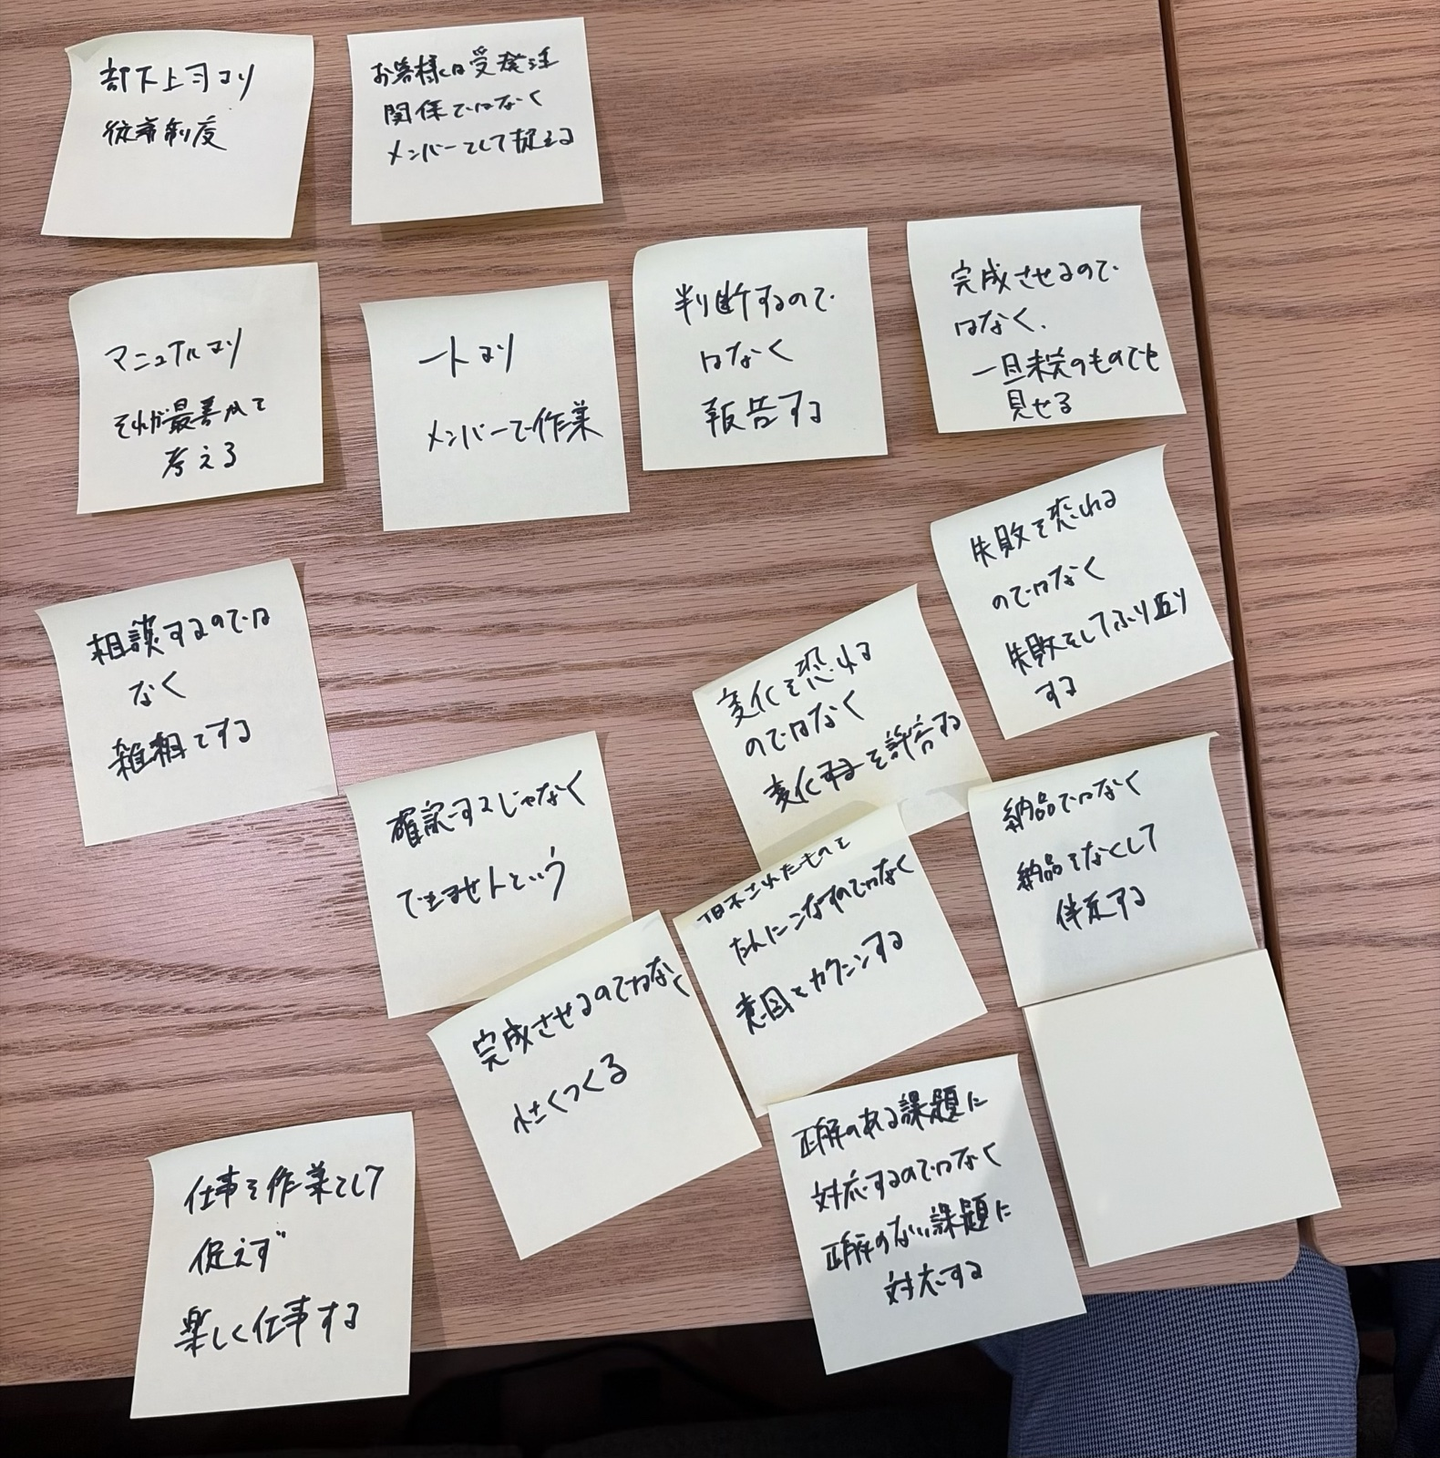 部下上司より
お客様は受発注
関係ではなく
メンバーとして捉える
マニュアルより
それが最善かて
考える
一人より
メンバーで作業
判断するので
はなく
報告する
完成させるので
はなく、
一旦未完のものでも
見せる
失敗を恐れる
のではなく
失敗をしてふり返り
する
相談するのでは
なく
雑相をする
変化を恐れる
のではなく
変化するを許容する
確認するじゃなく
できませんという
納品ではなく
納品をなくして
伴走する
指示されたものを
たんにこなすのではなく
意図をカクニンする
完成させるのではなく
小さくつくる
正解のある課題に
対応するのではなく
正解のない課題に
対応する
仕事を作業として
捉えず
楽しく仕事する